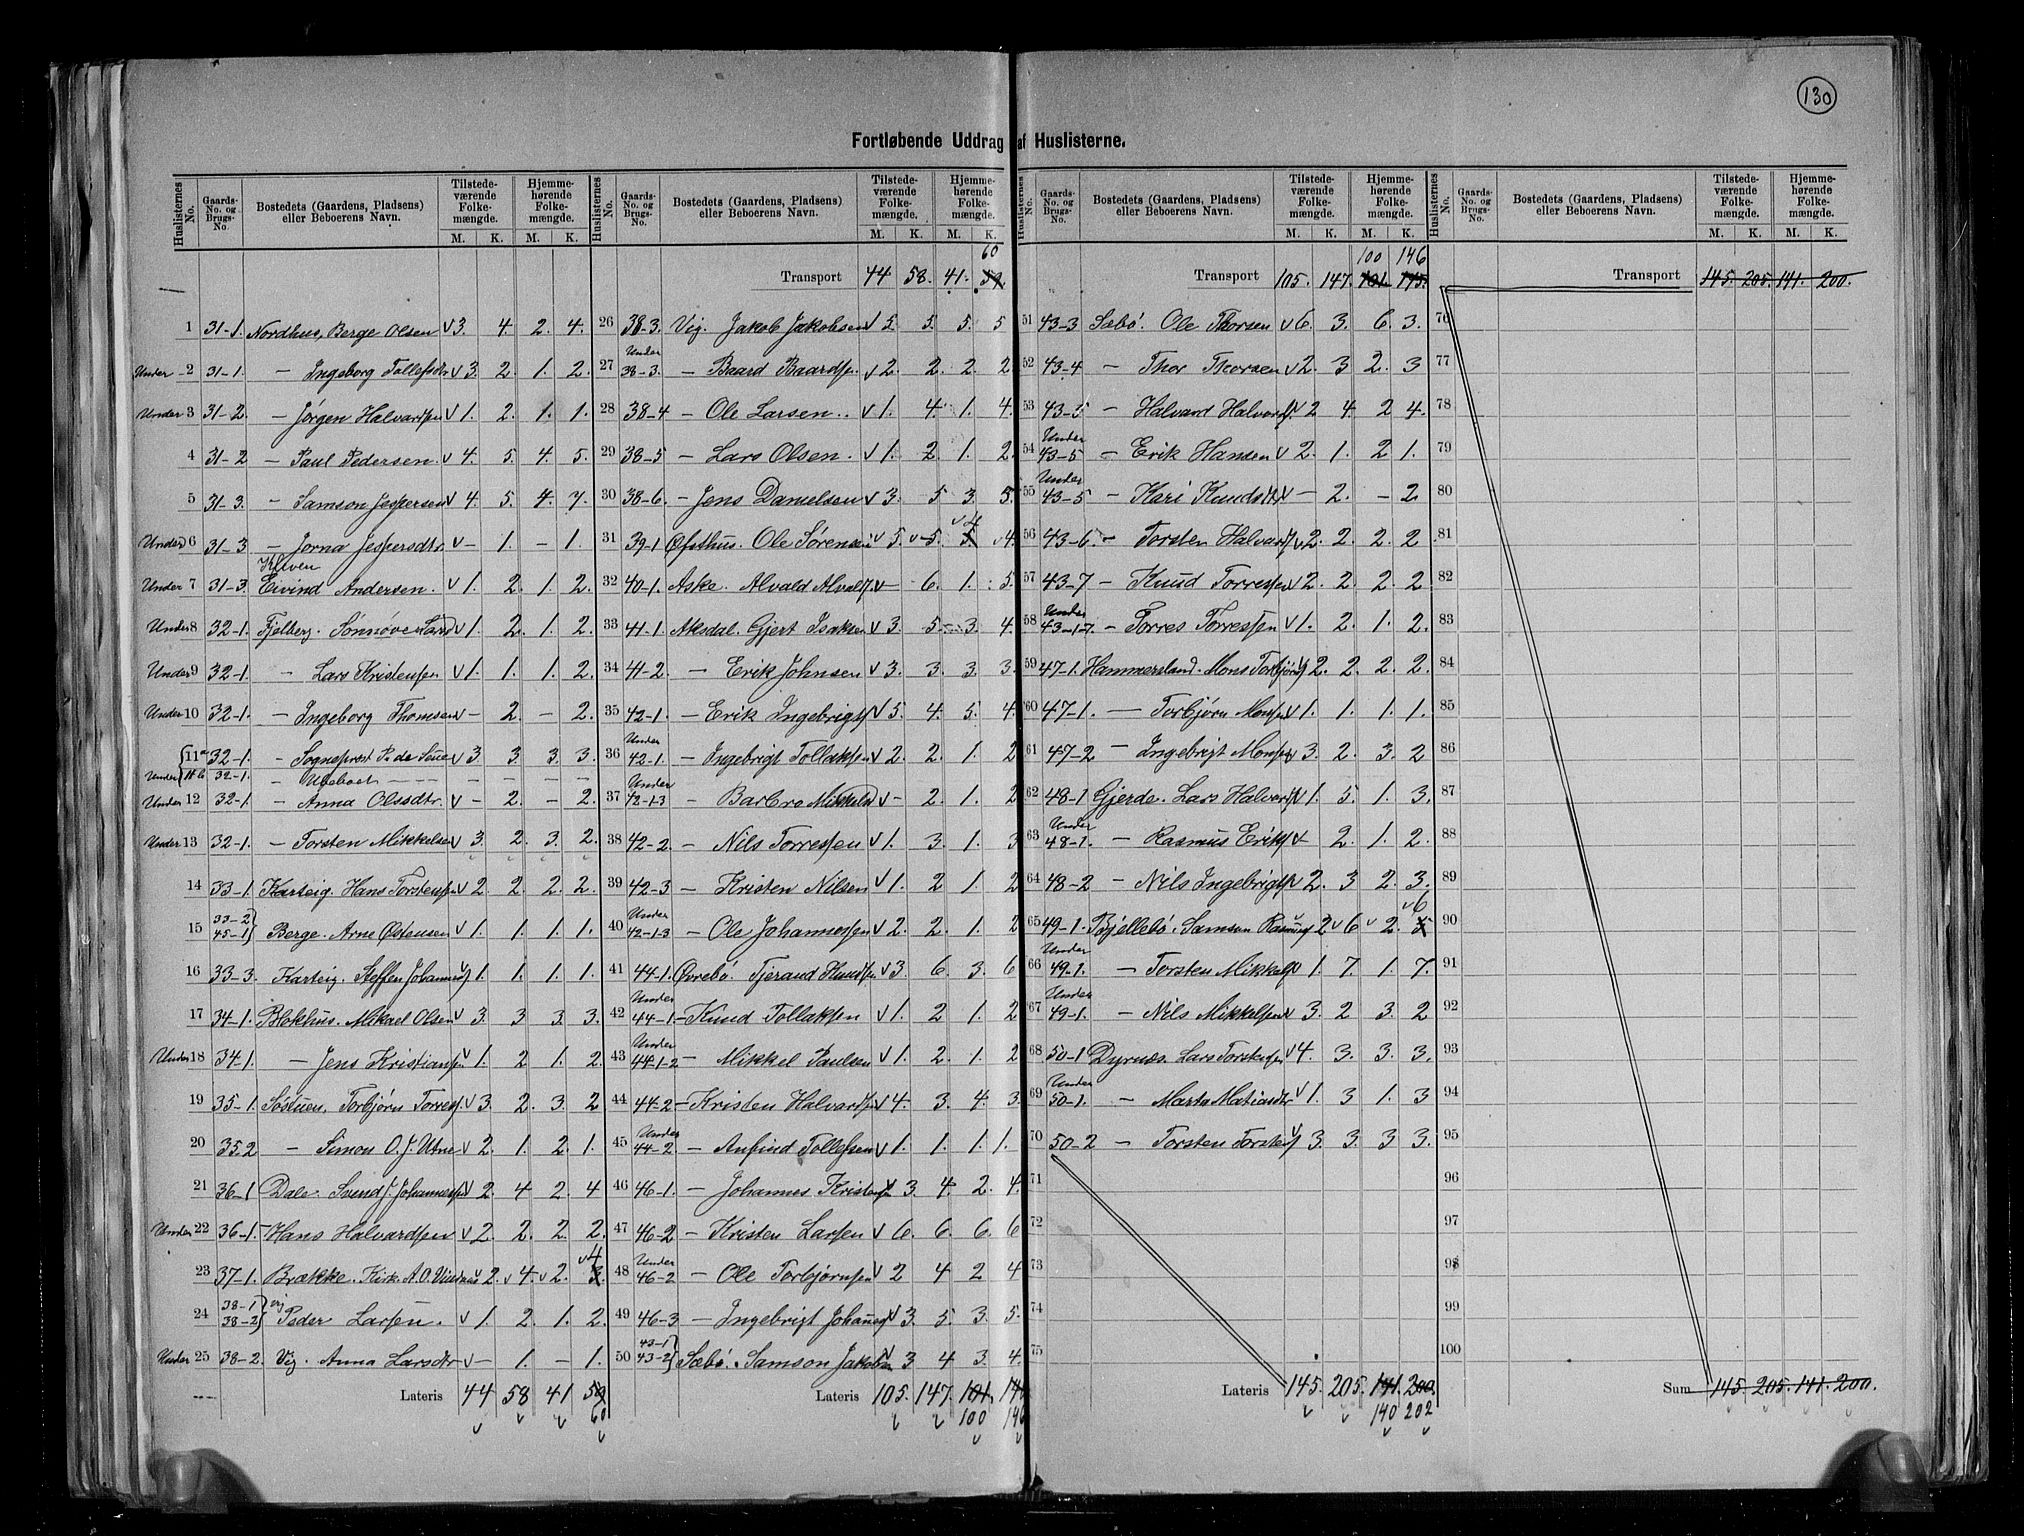 130
Fortløbende Uddrag af Huslisterne.
Huslisternes No. Gaards-No. og Brugs-No. Bostedets (Gaardens, Pladsens) eller Beboerens Navn. Tilstedeværende Folkemængde. M. K. Hjemmehørende Folkemængde. M. K.
1 31-1. Nordhus, Berge Olsen v 3. 4. 2. 4.
Under 2 31-1. — Ingeborg Tollefsdtr v 3. 2. 1. 2.
Under 3 31-2. — Jørgen Halvardsen v 1. 2. 1. 1.
4 31-2 — Paul Pedersen v 4. 5. 4. 5.
5 31-3. — Samson Jespersen v 4. 5. 4. 7.
Under 6 31-3 — Jorna Jespersdtr. v — 1. — 1.
Under 7 31-3. Eivind Andersen. v 1. 2. 1. 2.
Under 8 32-1. Fjelberg. v 1. 2. 1. 2.
Under 9 32-1. — Lars Kristensen v 1. 1. 1. 2.
Under 10 32-1. — Ingeborg Thomsen v — 2. — 2.
11a 32-1. — Sogneprest P. de Seue v 3. 3. 3. 3.
Under 11b 32-1. — Ubeboet — — — —
Under 12 32-1. — Anna Olssdtr. v — 2. — 2.
Under 13 32-1. — Torsten Mikkelsen v 3. 2. 3. 2.
14 33-1. Karteig. Hans Torstensen v 2. 2. 2. 2.
15 33-2 45-1 } Berge. Arne Østensen v 1. 1. 1. 1.
16 33-3. Karteig. Steffen Johannes v 1. 1. 1. 1.
17 34-1. Blokhus. Mikael Olsen v 3. 3 3. 3.
Under 18 34-1. — Jens Kristiansen v 1. 2 1. 2.
19 35-1. Søstuen. Torbjørn Torres v 3. 2. 3. 2
20 35.2 — Simon O. J. Utne v 2. 1. 2. 1.
21 36-1 Dale. Svend J. Johannessen v 2. 4 2. 4
Under 22 36-1. — Hans Halvardsen v 2. 2. 2. 2.
23 37-1. Brække. Kirk. v 2. v 4. v 2. 3. v 4
24 38-1 38-2 } Vig Peder Larsen. v 1. 2 1. 2.
Under 25 38-2. Vig. Anna Larsdtr v — 1. — 1.
Lateris 44 58 41 59 60
60
Transport 44 58. 41. 59.
26 38-3. Vig. Jakob Jakobsen v 5. 5. 5. 5
27 Under 38-3. — Baard Baardsen v 2. 2. 2. 2
28 38-4 — Ole Larsen.. v 1. 4. 1. 4.
29 38-5 — Lars Olsen. v 1. 2. 1. 2.
30 38-6. — Jens Danielsen v 3. 5 3. 5.
31 39-1 Øfsthus. Ole Sørensen v 5. v 5. v 4 v 4.
32 40-1. Aske. Alvald Alvalds. v — 6. 1. 5.
33 41-1. Aksdal. Gjert Isaksen v 3. 5. 3. 4.
34 41-2. — Erik Johnsen v 3. 3. 3. 3.
35 42-1. — Erik Ingebrigts v 5. 4. 5. 4.
36 Under 42-1. — Ingebrigt Tollaksen v 2. 2. 1. 2
37 Under 42-1.3 — Barbro v — 2. 1. 2
38 42-2. — Nils Torressen v 1. 3. 1. 3
39 42-3 — Kristen Nilsen v 1. 2 1. 2
40 Under 42-1.3 — Ole Johannessen v 2. 2. 1. 2
41 44-1. Øvrebø. Tjerand Knudsen v 3. 6 3. 6
42 Under 44-1. — Knud Tollaksen v 1. 2 1. 2
43 Under 44-1-2 — Mikkel Paulsen v 1. 2. 1. 2
44 44-2 — Kristen Halvardsen v 4. 3. 4. 3.
45 Under 44-2. — Anfind Tollefsen v 1. 1. 1. 1.
46 46-1. — Johannes Kristensen 3. 4. 2. 4.
47 46-2 — Kristen Larsen v 6. 6. 6. 6
48 Under 46-2 — Ole Torbjørnsen v 2 4 2 4
49 46-3 — Ingebrigt Johannes v 3. 5. 3. 5.
50 43-1 43-2 } Sæbø. Samson Jakobsen 3 4 3. 4.
Lateris 105. 147. 101. 100 146
100 146
Transport 105. 147. 101. 145.
51 43-3 Sæbö. Ole Thorsen v 6. 3. 6 3.
52 43-4 — Thor Thorsen v 2. 3 2. 3
53 43-5 — Halvard Halvards v 2 4. 2 4.
54 Under 43-5 — Erik Hansen v 2. 1. 2 1.
55 Under 43-5 — Kari v — 2. — 2.
56 43-6. — Torsten Halvards v 2. 2. 2. 2
57 43-7 — Knud Torressen v 2. 2. 2. 2
58 Under 43-1-7. — Torres Torressen v 1. 2. 1. 2.
59 47-1. Hammersland. Mons Torbjørns 2. 2. 2. 2.
60 47-1. — Torbjørn Monsen v 1. 1. 1. 1.
61 47-2 — Ingebrigt Monsen 3. 2. 3. 2
62 48-1 Gjerde. Lars Halvards v 1. 5. 1. 3.
63 Under 48-1. — Rasmus Eriks v — 2. 1. 2.
64 48-2 — Nils Ingebrigts v 2. 3 2. 3.
65 49-1. Bjellebö. Samson Rasmus v 2 v 6 v 2. v 6
66 Under 49-1. — Torsten Mikkels v 1. 7. 1. 7.
67 Under 49-1. — Nils Mikkelsen 3. 2 3. 2
68 50-1 Dyrnæs. Lars Torstensen v 4. 3. 3. 3.
69 Under 50-1. — Marta Matiasdtr v 1. 3 1. 3
70 50-2 — Torsten Torstens v 3. 3. 3 3.
71
72
73
74
75
Lateris 145. 205. 141. 200. 140 202
Transport 145. 205. 141. 200.
76
77
78
79
80
81
82
83
84
85
86
87
88
89
90
91
92
93
94
95
96
97
98
99
100
Sum 145. 205. 141. 200.